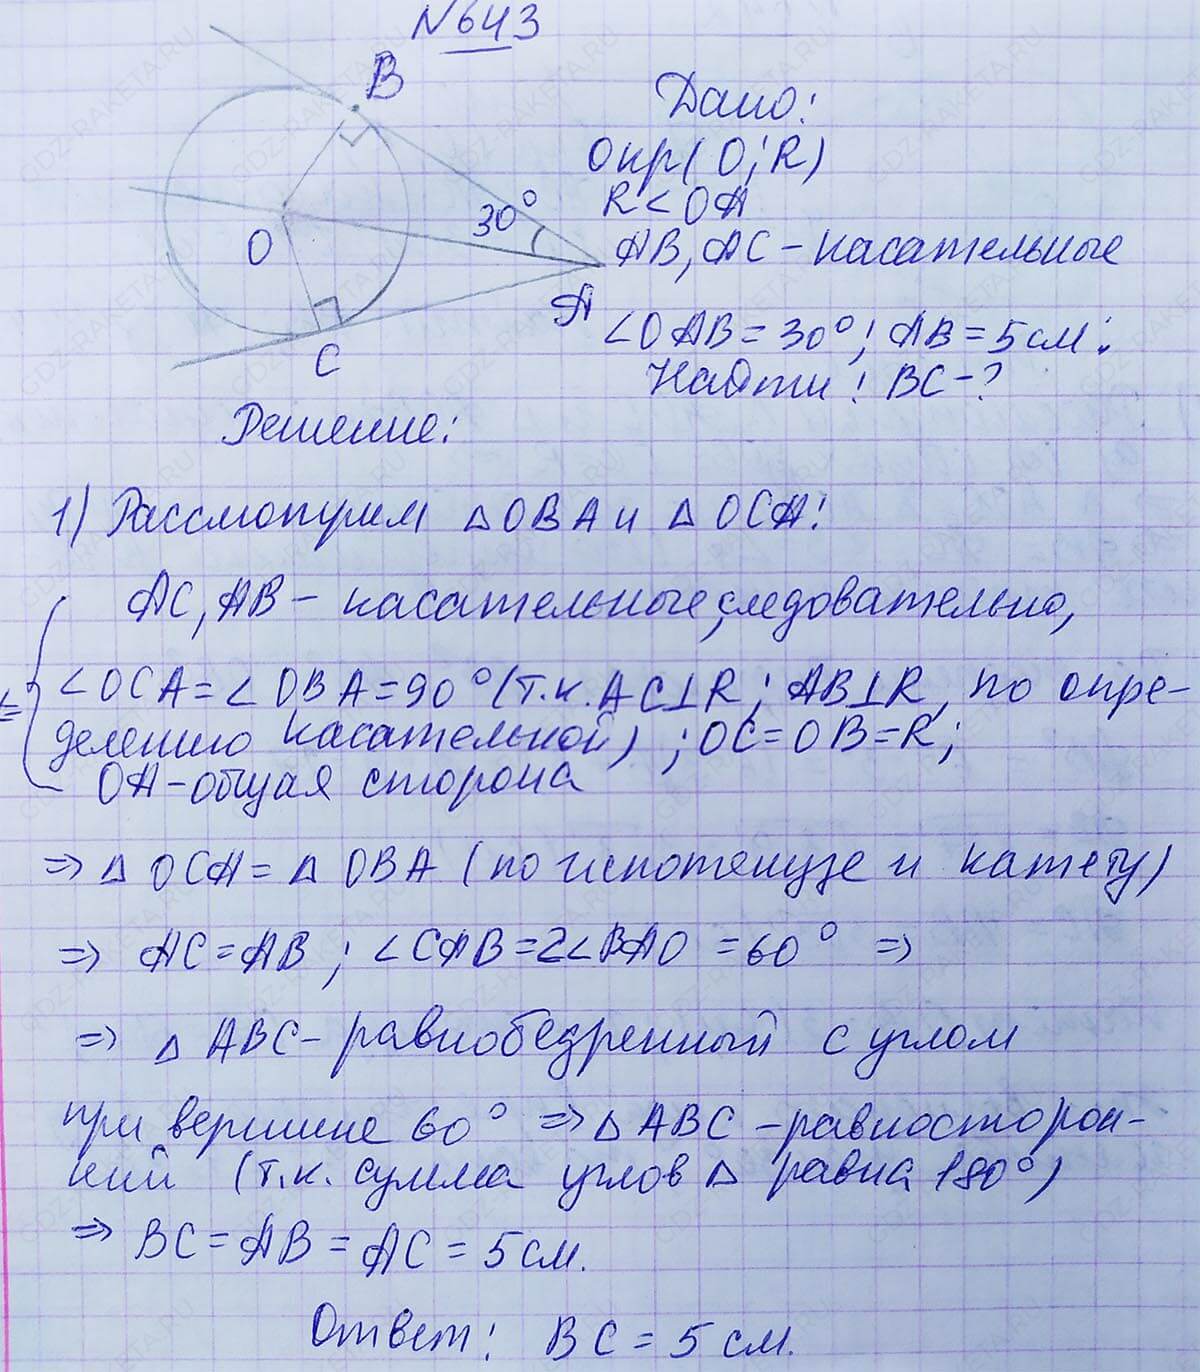 №643
B
Дано:
Окр(O;R)
R<OA
30°
O
AB, AC - касательные
A
∠OAB=30°; AB=5см.
C
Найти: BC-?
Решение:
1) Рассмотрим △OBA и △OCA:
AC, AB - касательные, следовательно,
∠OCA=∠OBA=90° (т.к. AC⊥R; AB⊥R, по опре-
делению касательной); OC=OB=R;
OA-общая сторона
=> △OCA=△OBA (по гипотенузе и катету)
=> AC=AB; ∠CAB=2∠BAO=60° =>
=> △ABC-равнобедренный с углом
при вершине 60° => △ABC-равносторон-
ний (т.к. сумма углов △ равна 180°)
=> BC=AB=AC=5см.
Ответ: BC=5см.
GDZ-RAKETA.RU